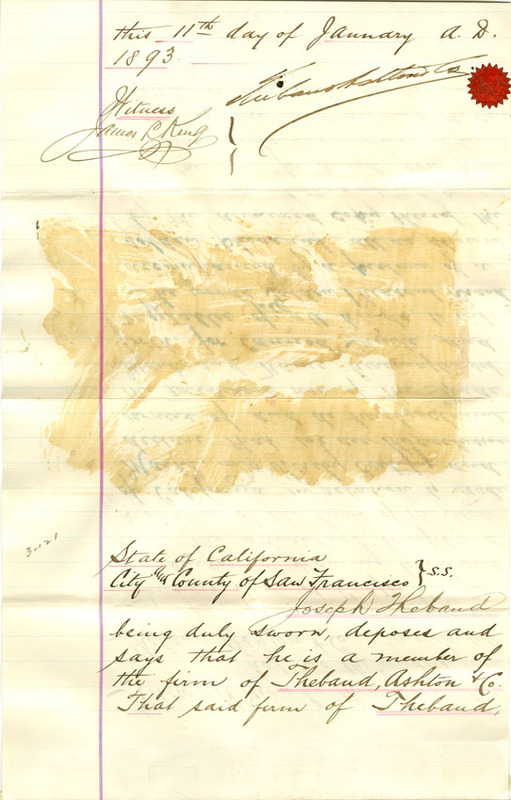 this 11th day of January A. D.
1893.
Witness
James C King
3-121
State of California
City and County of San Francisco } s.s.
Joseph Thebaud
being duly sworn, deposes and
says that he is a member of
the firm of Thebaud, Ashton & Co.
That said firm of Thebaud,